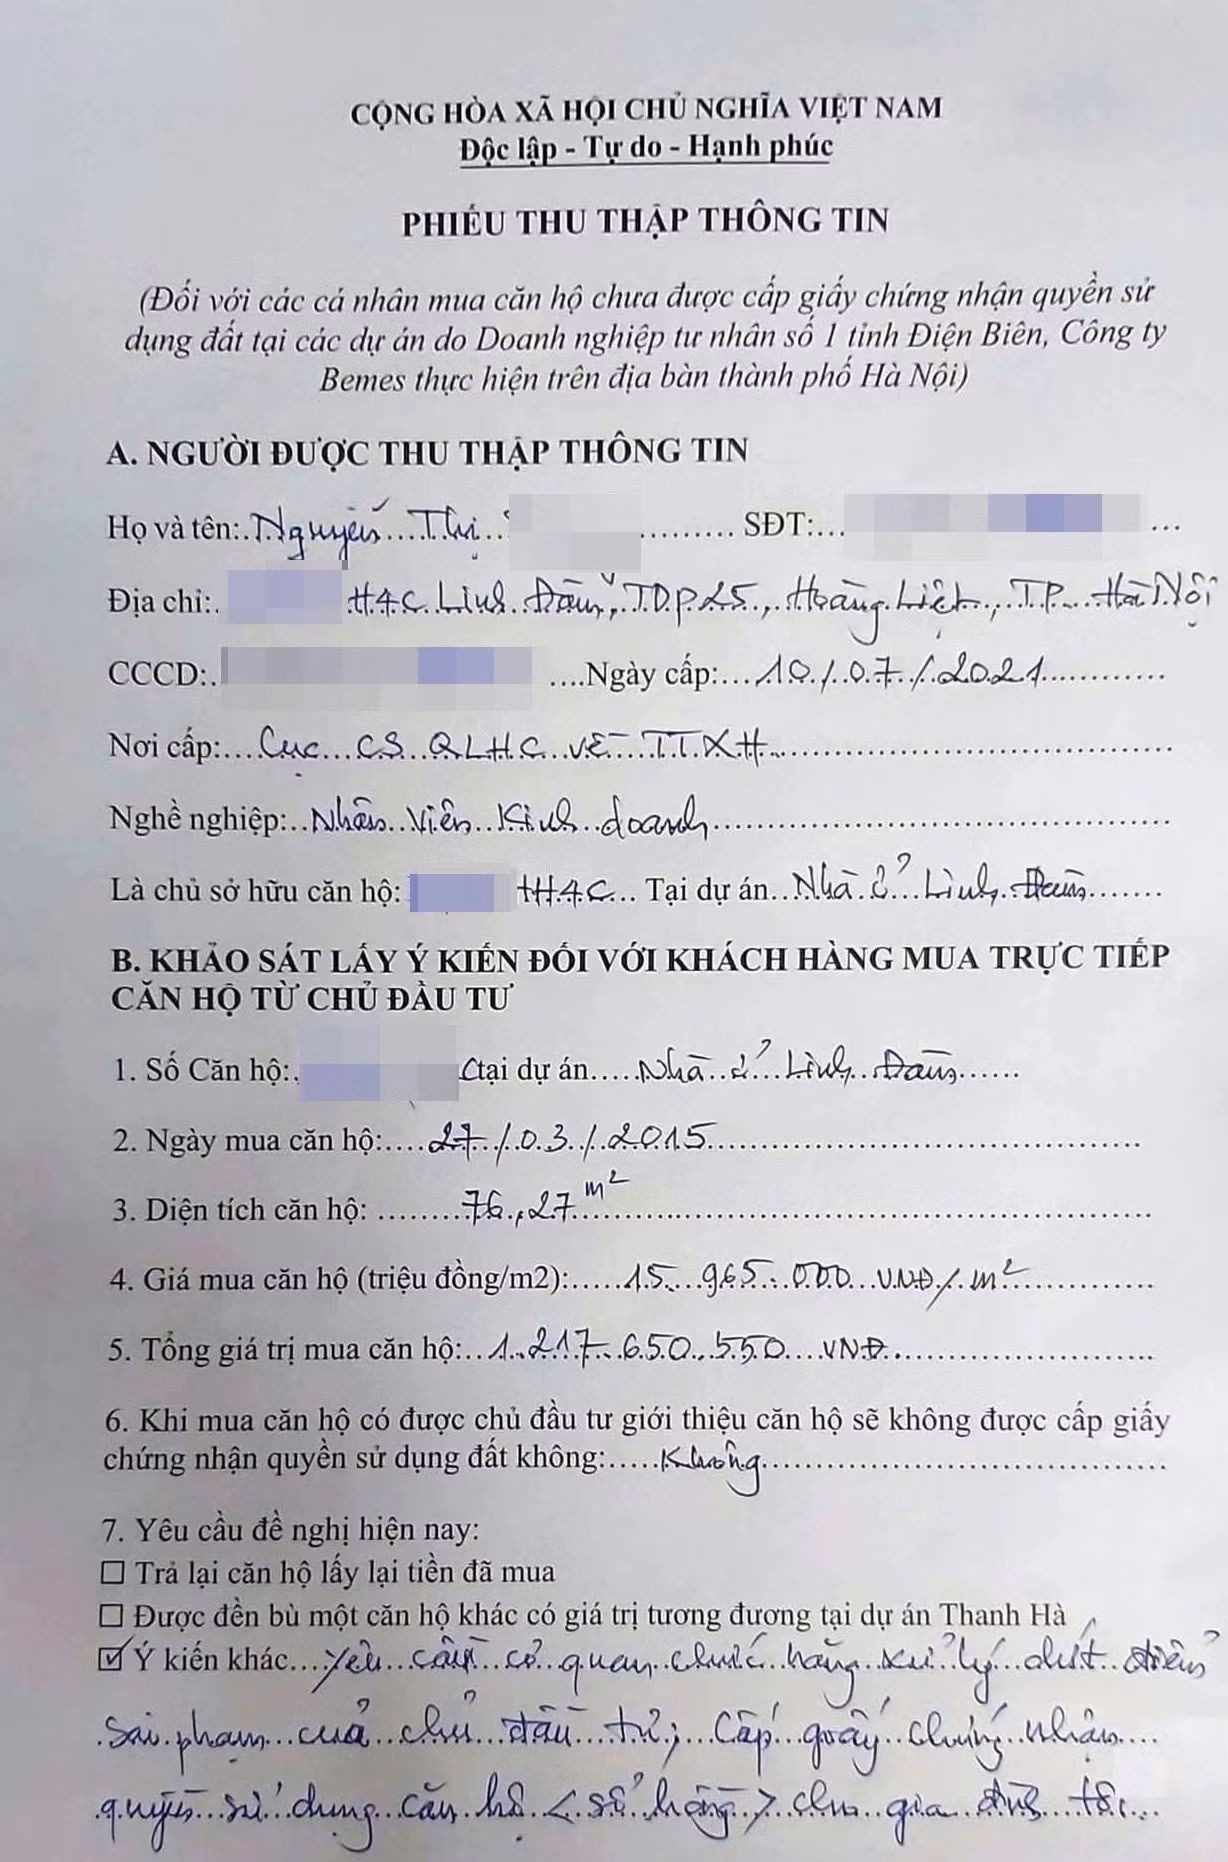 CỘNG HÒA XÃ HỘI CHỦ NGHĨA VIỆT NAM
Độc lập - Tự do - Hạnh phúc
PHIẾU THU THẬP THÔNG TIN
(Đối với các cá nhân mua căn hộ chưa được cấp giấy chứng nhận quyền sử
dụng đất tại các dự án do Doanh nghiệp tư nhân số 1 tỉnh Điện Biên, Công ty
Bemes thực hiện trên địa bàn thành phố Hà Nội)
A. NGƯỜI ĐƯỢC THU THẬP THÔNG TIN
Họ và tên: Nguyễn Thị ......... SĐT:... ...
Địa chỉ: H4C Linh Đàm, TDP 25, Hoàng Liệt, TP Hà Nội
CCCD: ....Ngày cấp:...10/07/2021............
Nơi cấp:....Cục CS QLHC VỀ TTXH...............
Nghề nghiệp:..Nhân Viên Kinh doanh...............
Là chủ sở hữu căn hộ: HH4C... Tại dự án...Nhà ở Linh Đàm.......
B. KHẢO SÁT LẤY Ý KIẾN ĐỐI VỚI KHÁCH HÀNG MUA TRỰC TIẾP
CĂN HỘ TỪ CHỦ ĐẦU TƯ
1. Số Căn hộ: C tại dự án.....Nhà ở Linh Đàm......
2. Ngày mua căn hộ:....27/03/2015...............
3. Diện tích căn hộ: ........76,27 m²...............
4. Giá mua căn hộ (triệu đồng/m2):.....15.965.000 VNĐ/m²............
5. Tổng giá trị mua căn hộ:..1.217.650.550 VNĐ...............
6. Khi mua căn hộ có được chủ đầu tư giới thiệu căn hộ sẽ không được cấp giấy
chứng nhận quyền sử dụng đất không:.....Không...............
7. Yêu cầu đề nghị hiện nay:
☐ Trả lại căn hộ lấy lại tiền đã mua
☐ Được đền bù một căn hộ khác có giá trị tương đương tại dự án Thanh Hà
☑ Ý kiến khác...Yêu cầu cơ quan chức năng xử lý dứt điểm
sai phạm của chủ đầu tư; Cấp giấy chứng nhận
quyền sử dụng căn hộ <sổ hồng> cho gia đình tôi...